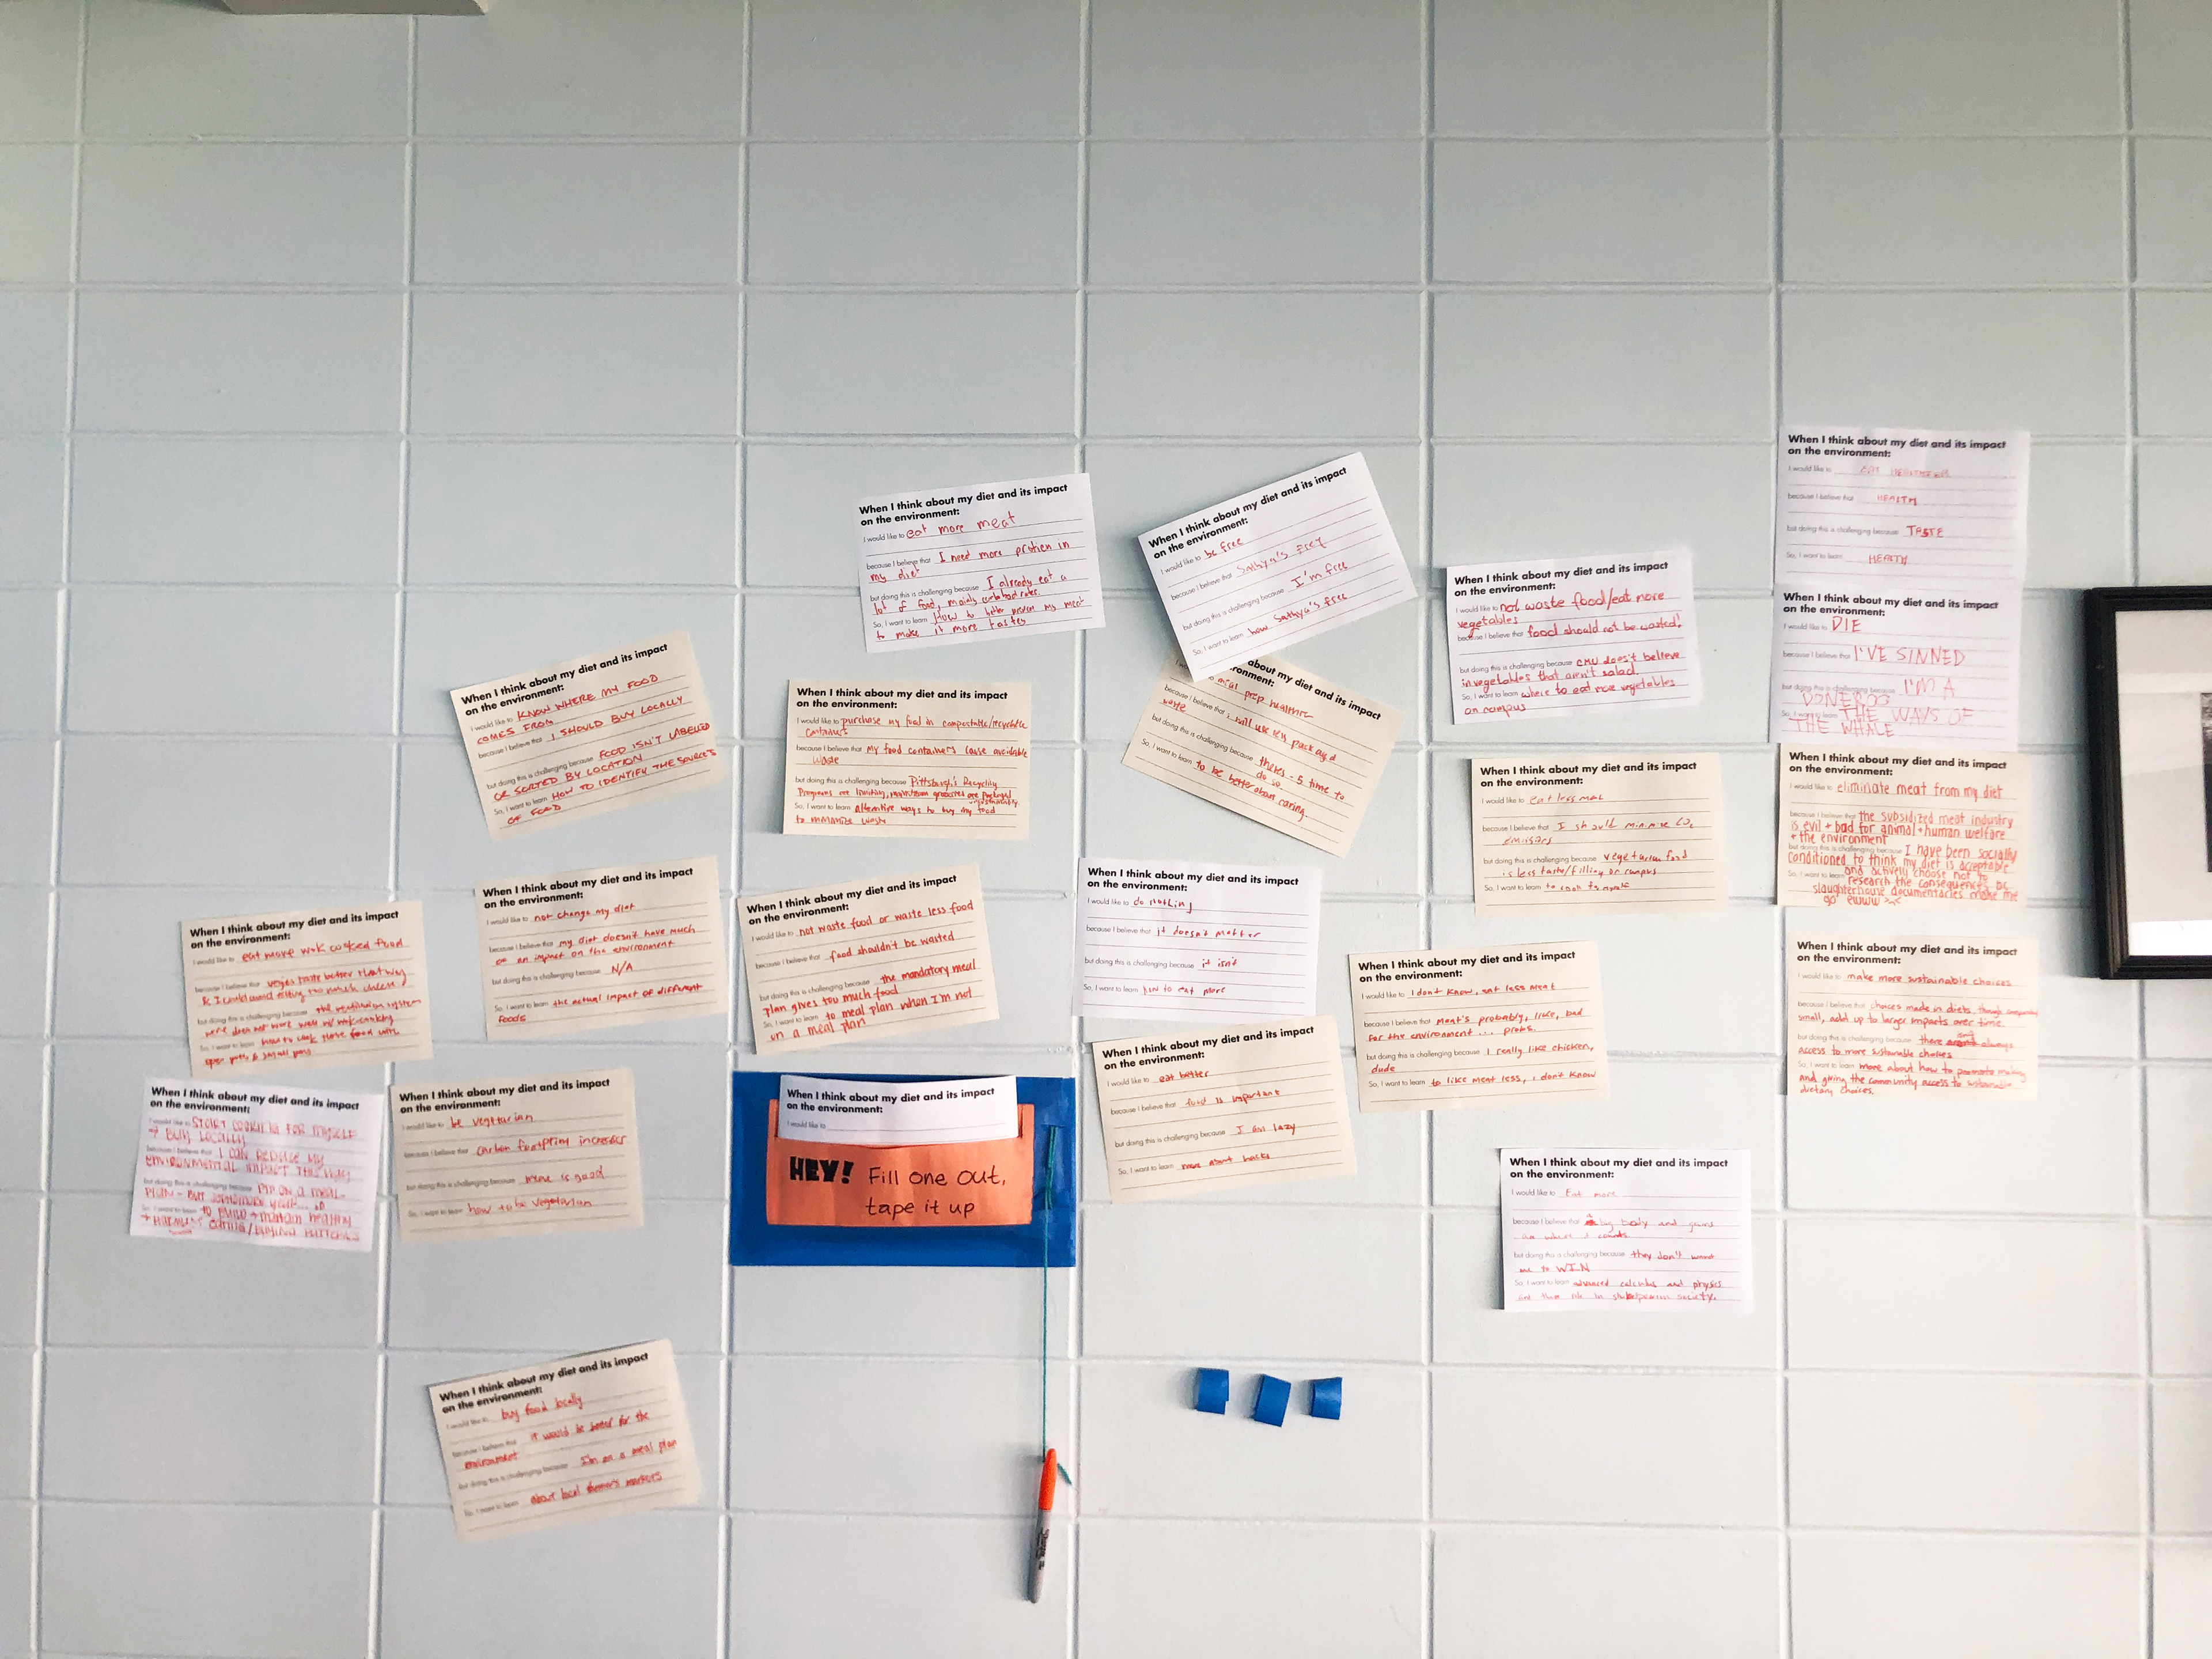 When I think about my diet and its impact
on the environment:
I would like to eat more meat
because I believe that I need more protien in
my diet
but doing this is challenging because I already eat a
lot of food, mainly
So, I want to learn How to my meat
to make it more tastey
When I think about my diet and its impact
on the environment:
I would like to be free
because I believe that Sathya's frey
but doing this is challenging because I'm free
So, I want to learn how Sathya's free
When I think about my diet and its impact
on the environment:
I would like to not waste food/eat more
vegetables
because I believe that food should not be wasted!
but doing this is challenging because CMU doesn't believe
in vegetables that aren't salad
So, I want to learn where to eat more vegetables
on campus
When I think about my diet and its impact
on the environment:
I would like to EAT
because I believe that HEALTH
but doing this is challenging because TASTE
So, I want to learn HEALTH
When I think about my diet and its impact
on the environment:
I would like to DIE
because I believe that I'VE SINNED
but doing this is challenging because I'M A
DONEROS
So, I want to learn THE WAYS OF
THE WHALE
When I think about my diet and its impact
on the environment:
I would like to KNOW WHERE MY FOOD
COMES FROM
because I believe that I SHOULD BUY LOCALLY
but doing this is challenging because FOOD ISN'T LABELLED
OR SORTED BY LOCATION
So, I want to learn HOW TO IDENTIFY THE SOURCES
OF FOOD
When I think about my diet and its impact
on the environment:
I would like to purchase my food in compostable/recyclable
containers
because I believe that my food containers cause avoidable
waste
but doing this is challenging because Pittsburgh's Recycling
Programs are limiting, mainstream groceries are packaged
unsustainably
So, I want to learn alternative ways to buy my food
to minimize waste
about my diet and its impact
environment:
meal prep
because I believe that i will use less packaged
waste
but doing this is challenging because theres -5 time to
do so
So, I want to learn to be better about caring
When I think about my diet and its impact
on the environment:
I would like to eat less meat
because I believe that I should minimize CO2
emissions
but doing this is challenging because vegetarian food
is less taste/filling on campus
So, I want to learn to cook
When I think about my diet and its impact
on the environment:
I would like to eliminate meat from my diet
because I believe that the subsidized meat industry
is evil + bad for animal + human welfare
+ the environment
but doing this is challenging because I have been socially
conditioned to think my diet is acceptable
and actively choose not to
So, I want to learn research the consequences bc
slaughterhouse documentaries make me
go eww
When I think about my diet and its impact
on the environment:
I would like to eat more wok cooked food
because I believe that veges taste better that way
& I could avoid eating too much cheesy
but doing this is challenging because the ventilation system
here does not work well w/ wok-cooking
So, I want to learn how to food with
open pots & small pans
When I think about my diet and its impact
on the environment:
I would like to not change my diet
because I believe that my diet doesn't have much
of an impact on the environment
but doing this is challenging because N/A
So, I want to learn the actual impact of different
foods
When I think about my diet and its impact
on the environment:
I would like to not waste food or waste less food
because I believe that food shouldn't be wasted
but doing this is challenging because the mandatory meal
plan gives too much food
So, I want to learn to meal plan when I'm not
on a meal plan
When I think about my diet and its impact
on the environment:
I would like to do nothing
because I believe that it doesn't matter
but doing this is challenging because it isn't
So, I want to learn how to eat more
When I think about my diet and its impact
on the environment:
I would like to I don't know, eat less meat
because I believe that meat's probably, like, bad
for the environment... probs.
but doing this is challenging because I really like chicken,
dude
So, I want to learn to like meat less, i don't know
When I think about my diet and its impact
on the environment:
I would like to make more sustainable choices
because I believe that choices made in diets, though
small, add up to larger impacts over time.
but doing this is challenging because there always
access to more sustainable choices
So, I want to learn more about how to promote making
and giving the community access to sustainable
dietary choices.
When I think about my diet and its impact
on the environment:
I would like to START COOKING FOR MYSELF
+ BUY LOCALLY
because I believe that I CAN REDUCE MY
ENVIRONMENTAL IMPACT THIS WAY
but doing this is challenging because I'M ON A MEAL
PLAN - BUT SOPHOMORE YEAR... SO
So, I want to learn TO BUILD + MAINTAIN HEALTHY
+ EATING/BUYING
When I think about my diet and its impact
on the environment:
I would like to be vegetarian
because I believe that carbon footprint increases
but doing this is challenging because is good
So, I want to learn how to be vegetarian
When I think about my diet and its impact
on the environment:
I would like to
HEY! Fill one out,
tape it up
When I think about my diet and its impact
on the environment:
I would like to eat better
because I believe that food is important
but doing this is challenging because I am lazy
So, I want to learn more about hacks
When I think about my diet and its impact
on the environment:
I would like to Eat more
because I believe that a big body and gains
are where it counts
but doing this is challenging because they don't want
me to WIN
So, I want to learn advanced calculus and physics
and their role in shakespearean society.
When I think about my diet and its impact
on the environment:
I would like to buy food locally
because I believe that it would be better for the
environment
but doing this is challenging because I'm on a meal plan
So, I want to learn about local farmer's markets
Sharpie